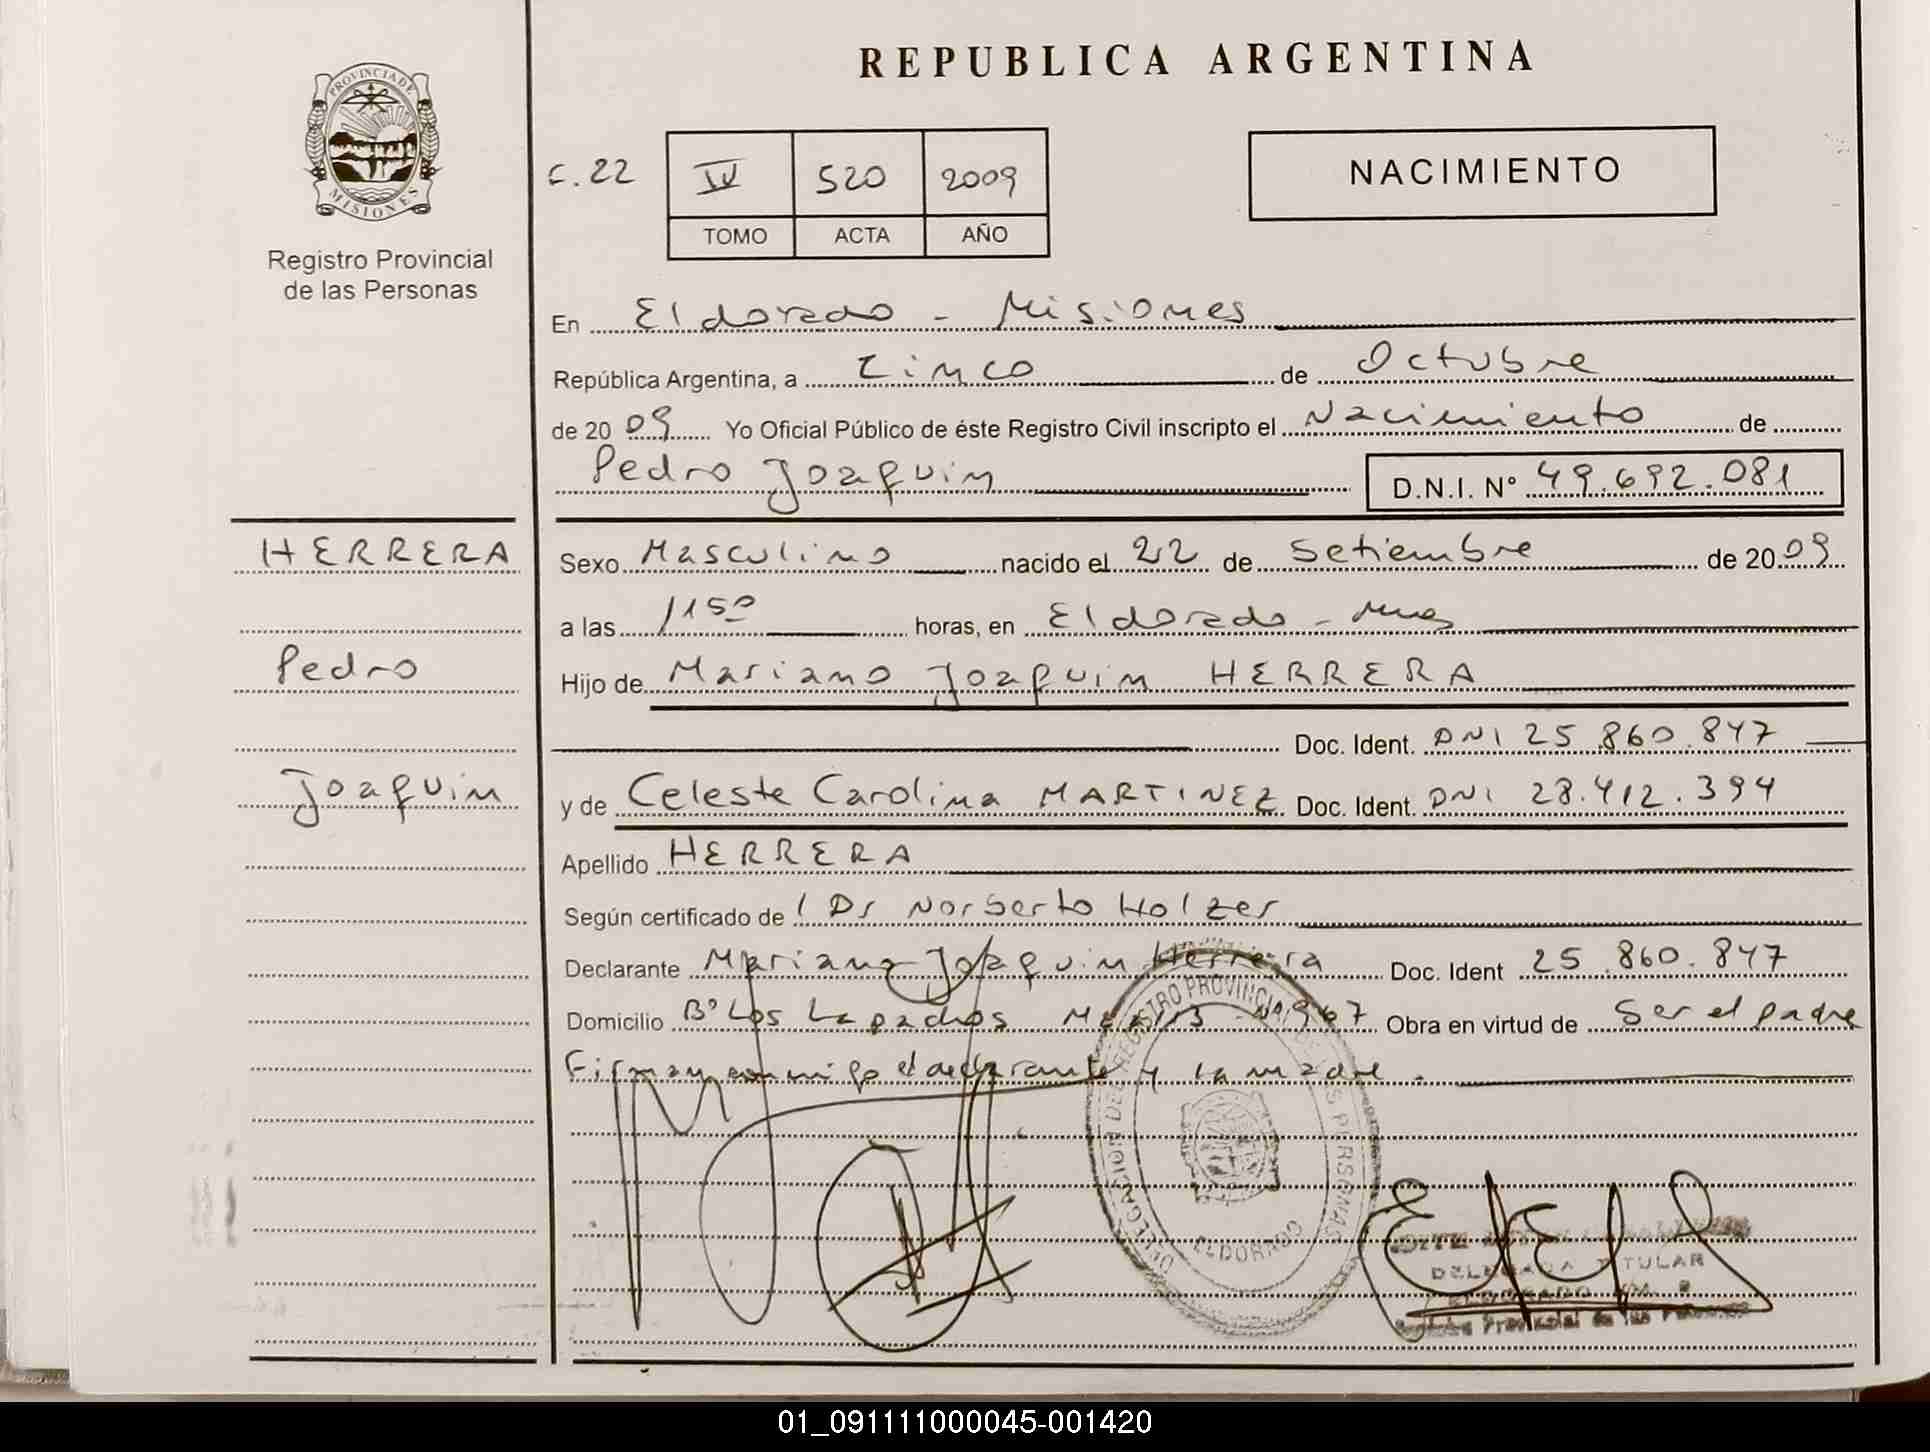 REPUBLICA ARGENTINA
PROVINCIA DE
MISIONES
Registro Provincial
de las Personas
c. 22
IV 520 2009
TOMO ACTA AÑO
NACIMIENTO
En Eldorado - Misiones
República Argentina, a Cinco de Octubre
de 2009 Yo Oficial Público de éste Registro Civil inscripto el Nacimiento de
Pedro Joaquin D.N.I. N° 49.692.081
HERRERA
Pedro
Joaquin
Sexo Masculino nacido el 22 de Setiembre de 2009
a las 1150 horas, en Eldorado - Mnes
Hijo de Mariano Joaquin HERRERA
Doc. Ident. DNI 25.860.847
y de Celeste Carolina MARTINEZ Doc. Ident. DNI 28.412.394
Apellido HERRERA
Según certificado de Dr Norberto Holzer
Declarante Mariano Joaquin Herrera Doc. Ident 25.860.847
Domicilio B° Los Lapachos Nº 967 Obra en virtud de Ser el padre
Firman conmigo el declarante y la madre.
DELEGACION DEL REGISTRO PROVINCIAL DE LAS PERSONAS
ELDORADO
DELEGADA TITULAR
ELDORADO KM.
Registro Provincial de las Personas
01_091111000045-001420